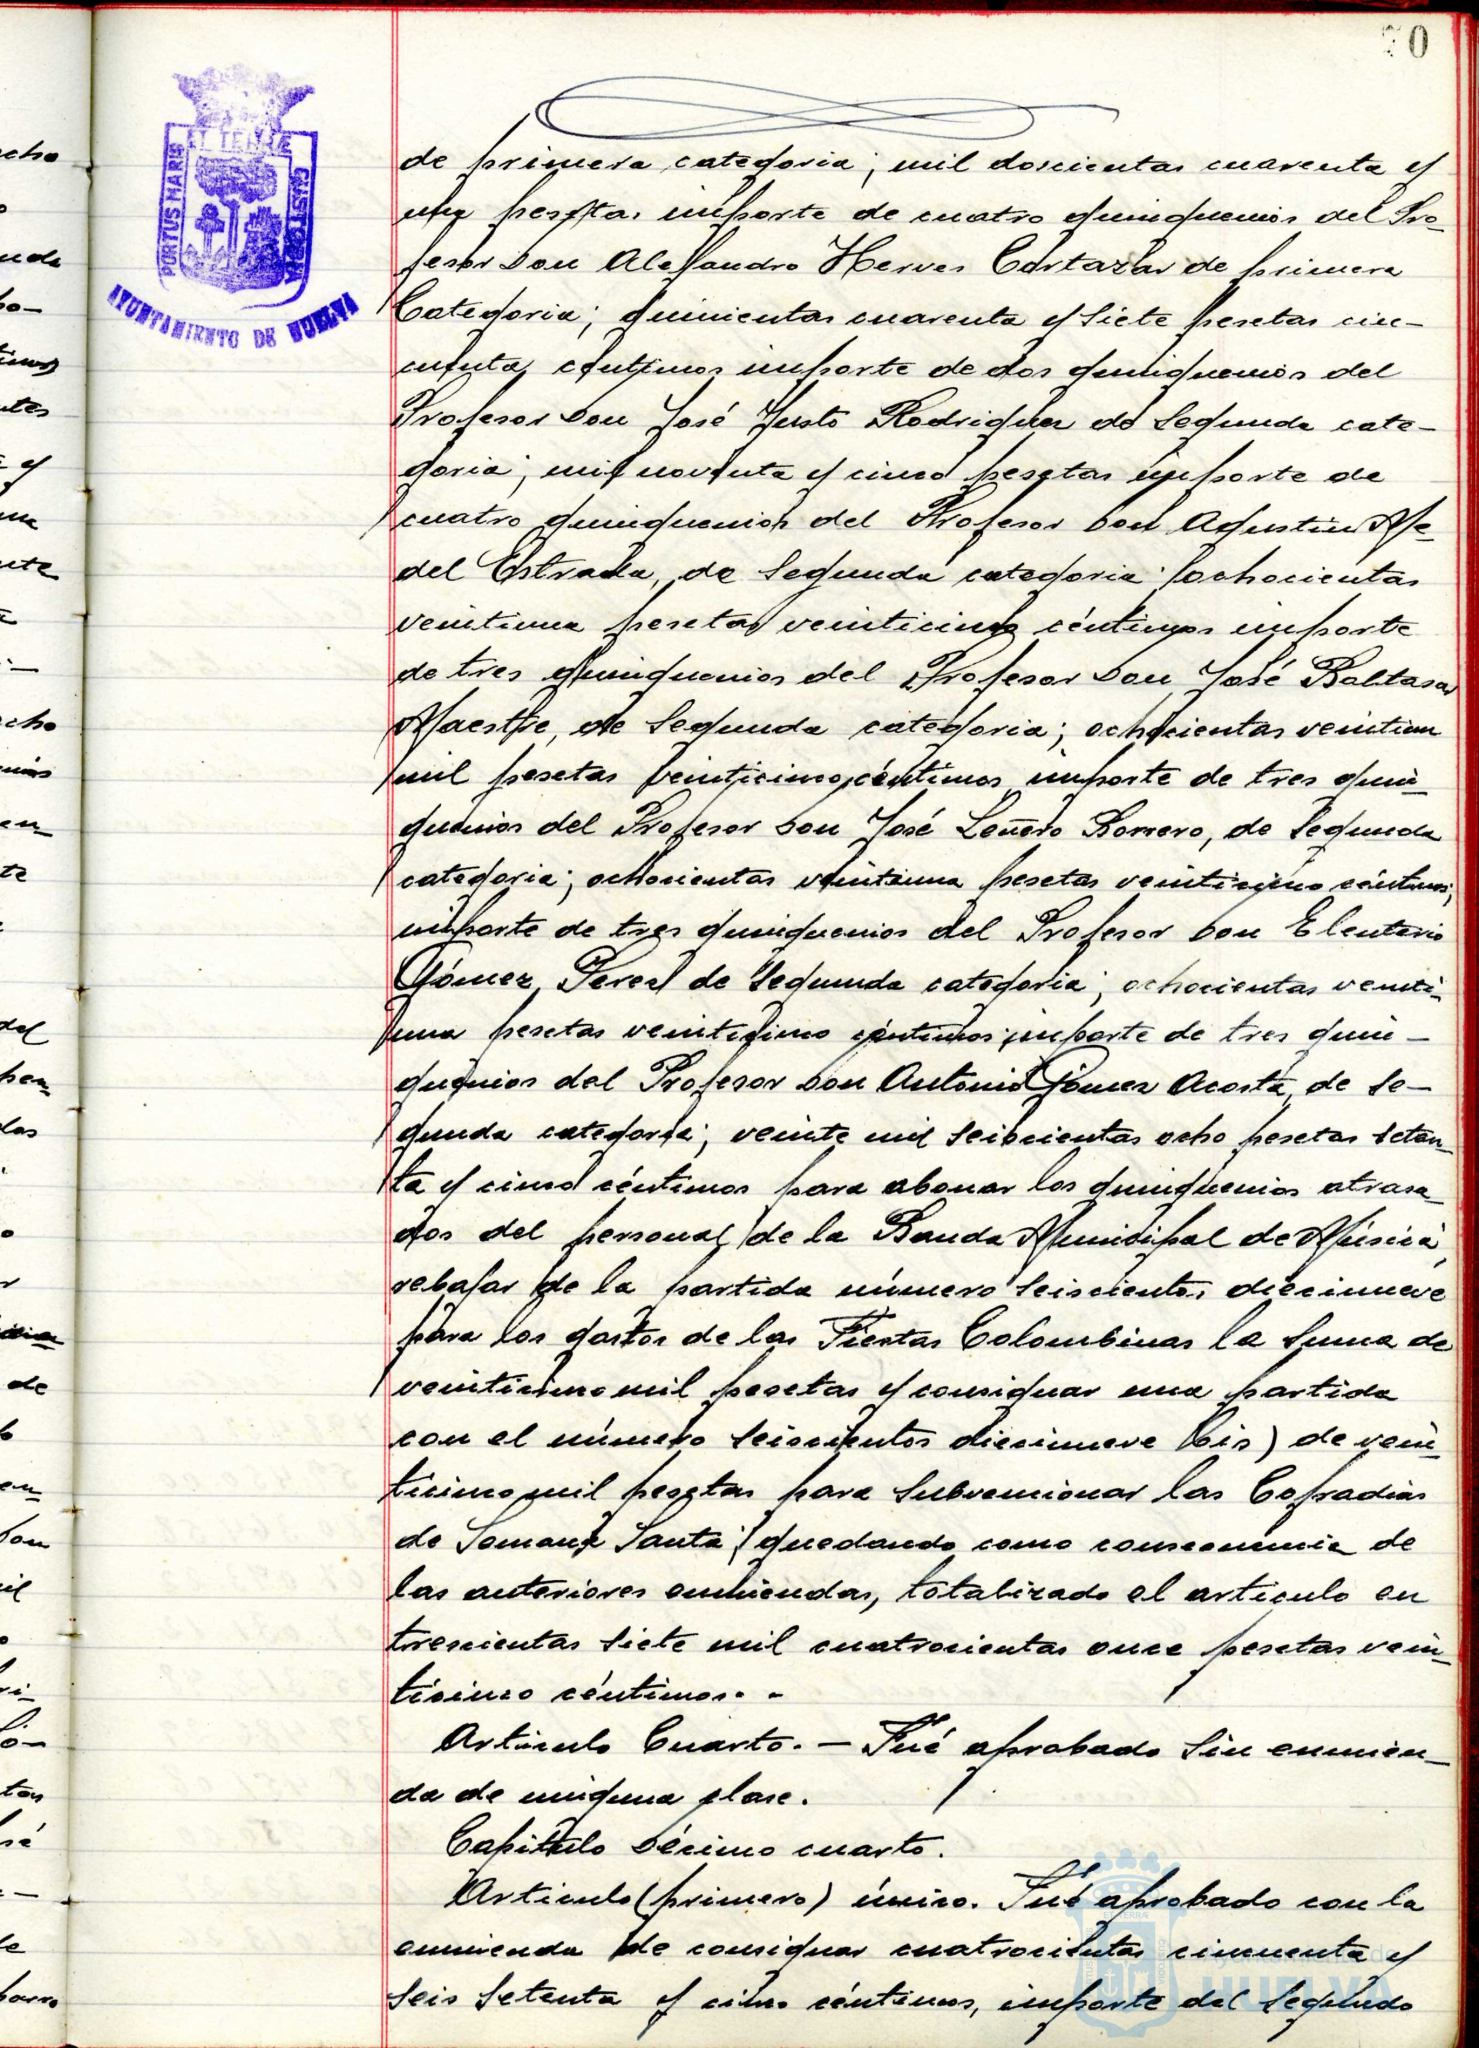 70
PORTUS MARIS ET TERRAE CUSTODIA
AYUNTAMIENTO DE HUELVA
de primera categoria; mil doscientas cuarenta y
una pesetas importe de cuatro quinquenios del Pro-
fesor Don Alejandro Herves Cortazar de primera
Categoria; quinientas cuarenta y siete pesetas cin-
cuenta centimos importe de dos quinquenios del
Profesor Don José Justo Rodriguez de Segunda cate-
goria; mil noventa y cinco pesetas importe de
cuatro quinquenios del Profesor Don Agustin Me-
del Estrada, de Segunda categoria; ochocientas
veintiuna pesetas veinticinco céntimos importe
de tres quinquenios del Profesor Don José Baltasar
Maestre, de Segunda categoria; ochocientas veintiun
mil pesetas veinticinco céntimos importe de tres quin-
quenios del Profesor Don José Leñero Romero, de Segunda
categoria; ochocientas veintiuna pesetas veinticinco céntimos,
importe de tres quinquenios del Profesor Don Eleuterio
Gómez Perez de Segunda categoria; ochocientas veinti-
una pesetas veinticinco céntimos importe de tres quin-
quenios del Profesor Don Antonio Gómez Acosta, de Se-
gunda categoria; veinte mil seiscientas ocho pesetas seten-
ta y cinco céntimos para abonar los quinquenios atrasa-
dos del personal de la Banda Municipal de Música,
rebajar de la partida número seiscientos diecinueve
para los gastos de las Fiestas Colombinas la Suma de
veinticinco mil pesetas y consignar una partida
con el número seiscientos diecinueve bis) de vein-
ticinco mil pesetas para Subvencionar las Cofradias
de Semana Santa; quedando como consecuencia de
las anteriores enmiendas, totalizado el articulo en
trescientas siete mil cuatrocientas once pesetas vein-
ticinco céntimos. -
Articulo Cuarto. - Fué aprobado sin enmien-
da de ninguna clase.
Capitulo Décimo cuarto.
Articulo (primero) único. Fué aprobado con la
enmienda de consignar cuatrocientas cincuenta y
seis setenta y cinco céntimos, importe del Segundo
Ayuntamiento de
HUELVA